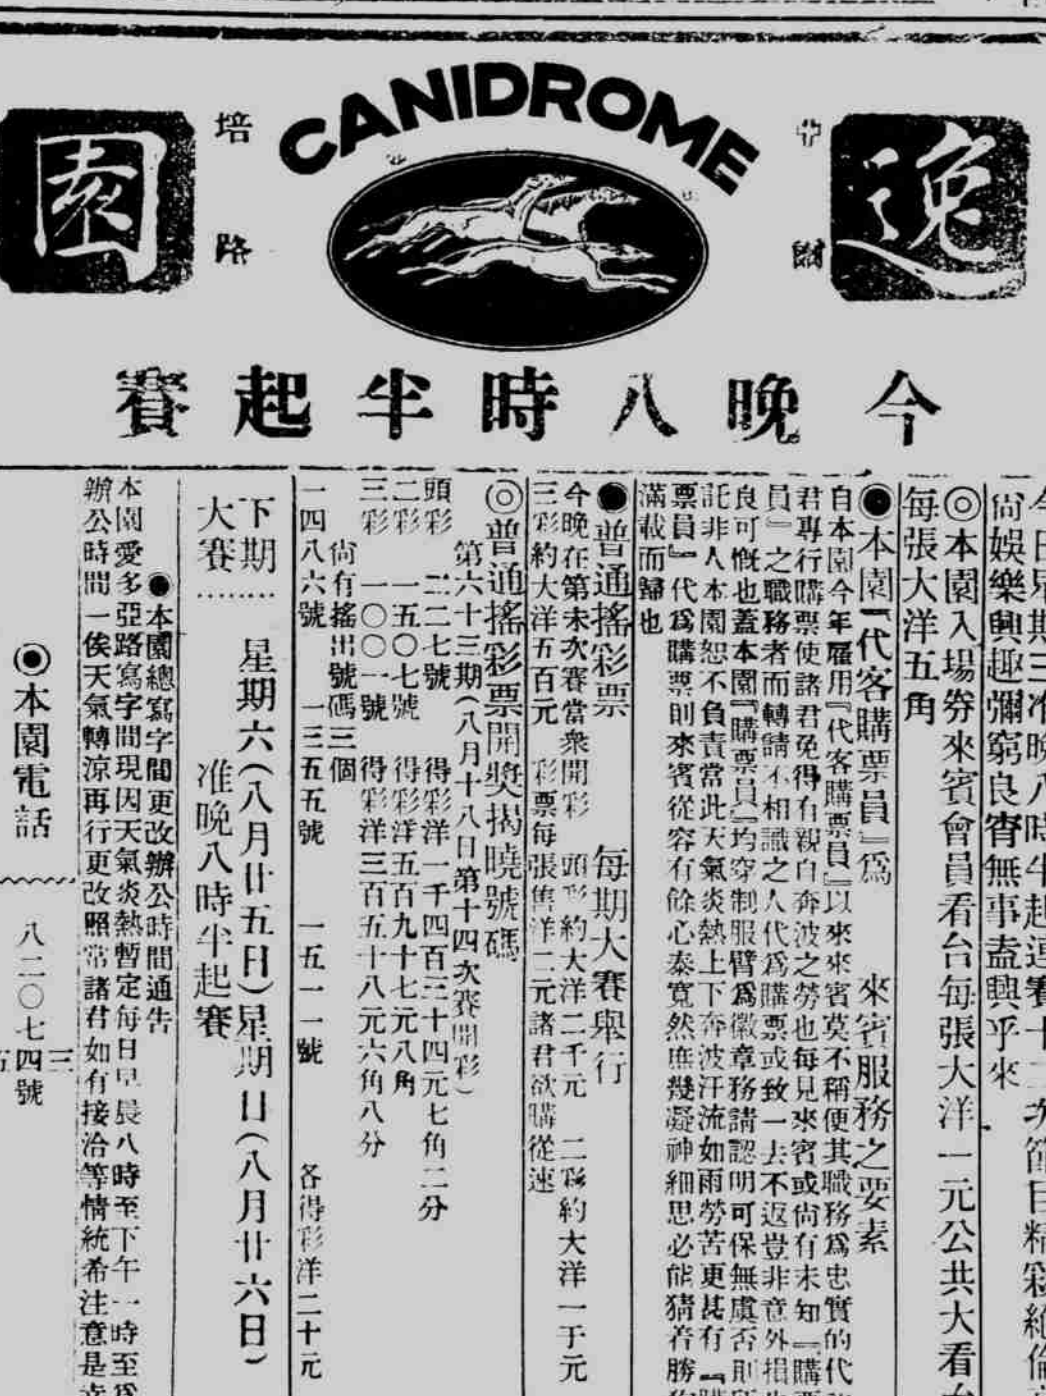 CANIDROME
逸園
培路
今晚八時半起賽
尙娛樂興趣彌窮良宵無事盍興乎來
◎本園入場券來賓會員看台每張大洋一元公共大看
每張大洋五角
◉本園『代客購票員』爲 來賓服務之要素
自本園今年雇用『代客購票員』以來來賓莫不稱便其職務爲忠實的代
君專行購票使諸君免得有親自奔波之勞也每見來賓或尙有未知『購
員』之職務者而轉請不相識之人代爲購票或致一去不返豈非意外損
良可慨也蓋本園『購票員』均穿制服臂爲徽章務請認明可保無虞否則
託非人本園恕不負責當此天氣炎熱上下奔波汗流如雨勞苦更甚有『
票員』代爲購票則來賓從容有餘心泰寬然庶幾凝神細思必能猜着勝
滿載而歸也
●普通搖彩票 每期大賽舉行
今晚在第末次賽當衆開彩 頭彩約大洋二千元 二彩約大洋一千元
三彩約大洋五百元 彩票每張售洋二元諸君欲購從速
◎普通搖彩票開獎揭曉號碼
第六十三期(八月十八日第十四次賽開彩)
頭彩 二二七號 得彩洋一千四百三十四元七角二分
二彩 一五〇七號 得彩洋五百九十七元八角
三彩 一〇〇一號 得彩洋三百五十八元六角八分
尙有搖出號碼三個
一四八六號 一三五五號 一五一一號 各得彩洋二十元
下期 星期六(八月廿五日)星期日(八月廿六日)
大賽…… 准晚八時半起賽
●本園總寫字間更改辦公時間通告
本園愛多亞路寫字間現因天氣炎熱暫定每日早晨八時至下午一時至
辦公時間一俟天氣轉涼再行更改照常諸君如有接洽等情統希注意是
◉本園電話 八二〇七四號
三